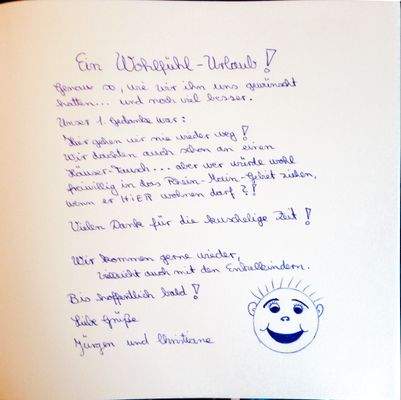 Ein Wohlfühl-Urlaub!
Genau so, wie wir ihn uns gewünscht
hatten... und noch viel besser.
Unser 1. Gedanke war:
Hier gehen wir nie wieder weg!
Wir dachten auch schon an einen
Häuser-Tausch... aber wer würde wohl
freiwillig in das Rhein-Main-Gebiet ziehen,
wenn er HIER wohnen darf?!
Vielen Dank für die kuschelige Zeit!
Wir kommen gerne wieder,
vielleicht auch mit den Enkelkindern.
Bis hoffentlich bald!
Liebe Grüße
Jürgen und Christiane